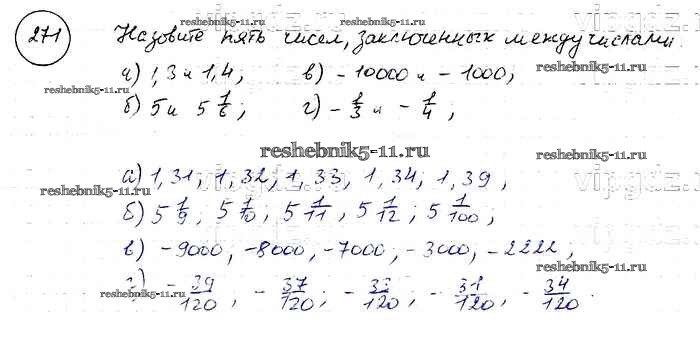 271 Назовите пять чисел, заключенных между числами.
а) 1,3 и 1,4; в) -10000 и -1000;
б) 5 и 5 1/6; г) -1/3 и -1/4;
а) 1,31; 1,32; 1,33; 1,34; 1,39,
б) 5 1/9; 5 1/10; 5 1/11, 5 1/12; 5 1/100;
в) -9000, -8000, -7000, -3000, -2222,
г) -39/120; -37/120; -33/120, -31/120, -34/120.
vipgdz.ru
reshebnik5-11.ru
reshebnik5-11.ru
reshebnik5-11.ru
reshebnik5-11.ru
vipgdz.ru
reshebnik5-11.ru
reshebnik5-11.ru